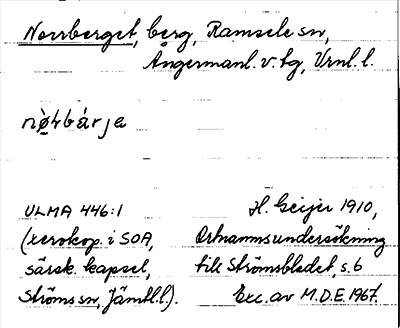 Norrberget, berg, Ramsele sn,
Ångermanl. v. tg, Vrnl. l.
nø̀ɬbárja
ULMA 446:1
(xerokop. i SOA,
särsk. kapsel,
Ströms sn, Jämtl. l.).
H. Geijer 1910,
Ortnamnsundersökning
till Strömsbladet, s. 6
Exc. av M.D.E. 1967.